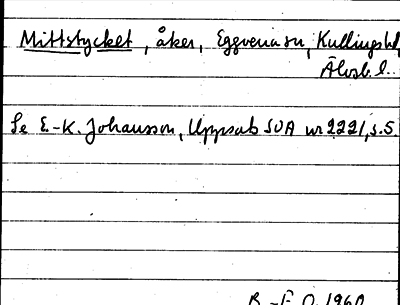 Mittstycket, åker, Eggvena sn, Kullings hd,
Älvsb. l.
Se E.-K. Johansson, Uppsats SOA nr 2221, s. 5.
B.-F. O. 1960